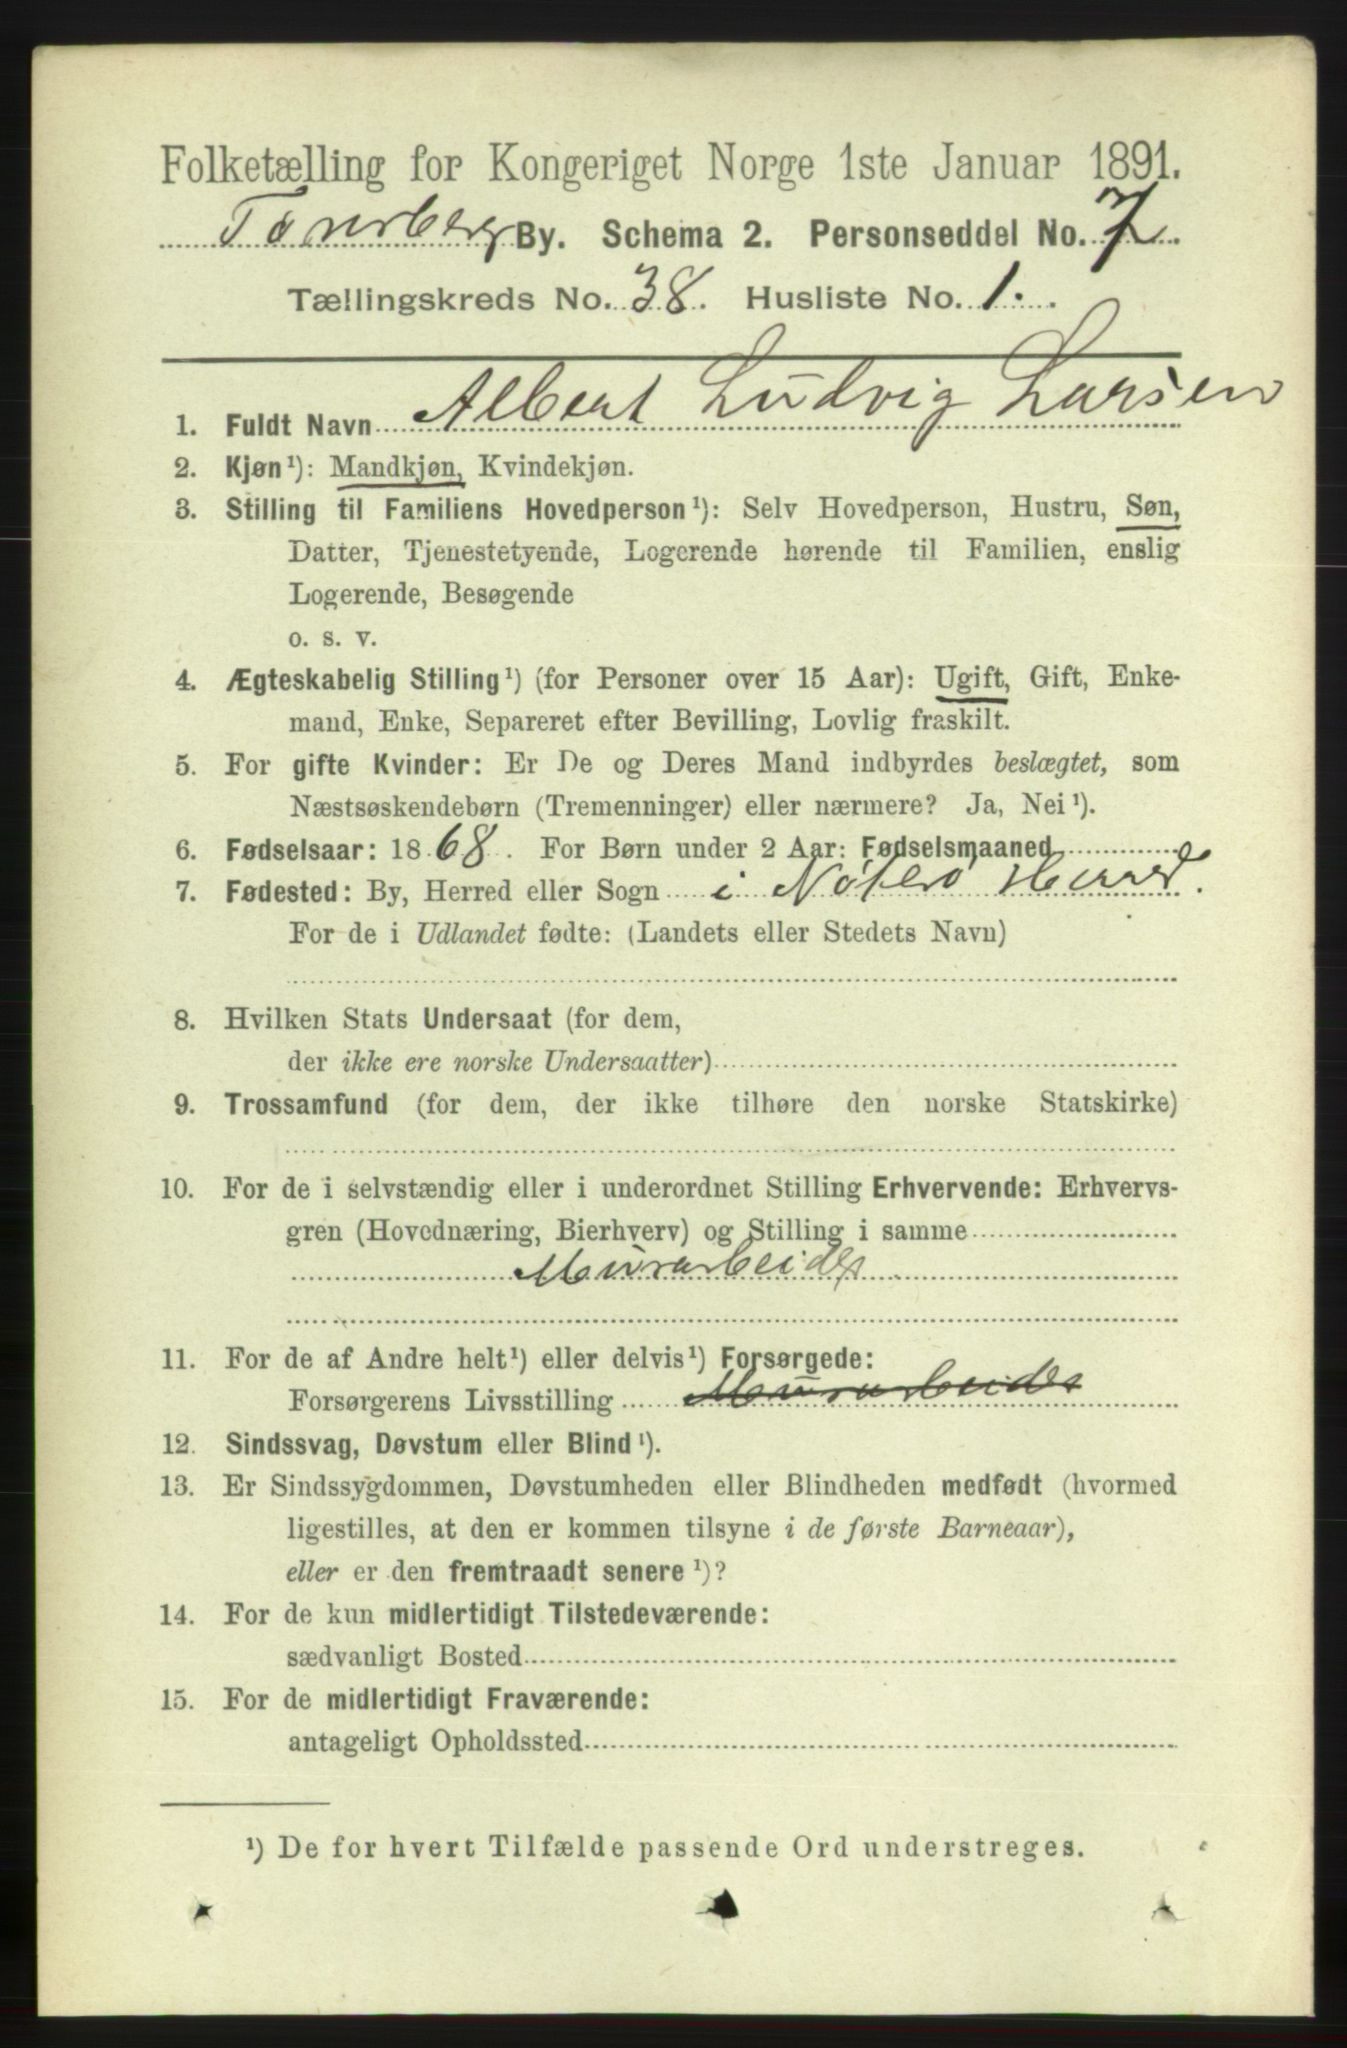 Folketælling for Kongeriget Norge 1ste Januar 1891.
Tønsberg By. Schema 2. Personseddel No. 7.
Tællingskreds No. 38. Husliste No. 1.
1. Fuldt Navn Albert Ludvig Larsen
2. Kjøn¹): Mandkjøn, Kvindekjøn.
3. Stilling til Familiens Hovedperson¹): Selv Hovedperson, Hustru, Søn,
Datter, Tjenestetyende, Logerende hørende til Familien, enslig
Logerende, Besøgende
o. s. v.
4. Ægteskabelig Stilling¹) (for Personer over 15 Aar): Ugift, Gift, Enke-
mand, Enke, Separeret efter Bevilling, Lovlig fraskilt.
5. For gifte Kvinder: Er De og Deres Mand indbyrdes beslægtet, som
Næstsøskendebørn (Tremenninger) eller nærmere? Ja, Nei¹).
6. Fødselsaar: 1868. For Børn under 2 Aar: Fødselsmaaned
7. Fødested: By, Herred eller Sogn i Nøterø Herred.
For de i Udlandet fødte: (Landets eller Stedets Navn)
8. Hvilken Stats Undersaat (for dem,
der ikke ere norske Undersaatter)
9. Trossamfund (for dem, der ikke tilhøre den norske Statskirke)
10. For de i selvstændig eller i underordnet Stilling Erhvervende: Erhvervs-
gren (Hovednæring, Bierhverv) og Stilling i samme
Murarbeider
11. For de af Andre helt¹) eller delvis¹) Forsørgede:
Forsørgerens Livsstilling Murarbeider
12. Sindssvag, Døvstum eller Blind¹).
13. Er Sindssygdommen, Døvstumheden eller Blindheden medfødt (hvormed
ligestilles, at den er kommen tilsyne i de første Barneaar),
eller er den fremtraadt senere¹)?
14. For de kun midlertidigt Tilstedeværende:
sædvanligt Bosted
15. For de midlertidigt Fraværende:
antageligt Opholdssted
¹) De for hvert Tilfælde passende Ord understreges.